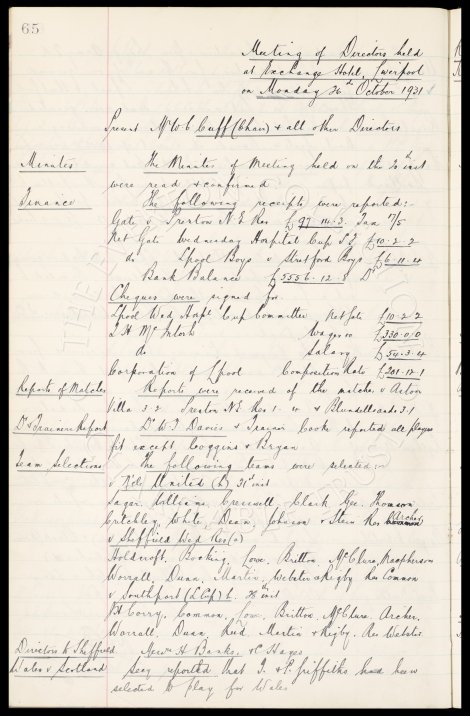 65
Meeting of Directors held
at Exchange Hotel, Liverpool
on Monday 26th October 1931
Present Mr W C Cuff (Chair) & all other Directors
Minutes The Minutes of Meeting held on the 20th inst
were read & confirmed
Finance The following receipts were reported:
Gate v Preston N.E Res £97.14.3. Tax 7/5
Net Gate Wednesday Hospital Cup S.F. £10.2.2
do Lpool Boys v Stretford Boys £6.11.4
Bank Balance £5556.12.8 Dr
Cheques were signed for
Lpool Wed Hospl Cup Committee Net Gate £10.2.2
T H McIntosh Wages £330.0.0
do Salary £54.3.4
Corporation of Lpool Composition Rate £201.12.1
Reports of Matches Reports were received of the matches v Aston
Villa 3-2 Preston N.E Res 1-4 & Blundellsands 3-1
Dr & Trainers Report Dr W J Davies & Trainer Cooke reported all players
fit except Coggins & Bryan
Team Selections The following teams were selected:-
v United 31st inst
Sagar, Williams, Cresswell, Clark, Gee, Thomson,
Critchley, White, Dean, Johnson & Stein Res Archer
v Sheffield Wed Res (a)
Holdcroft, Bocking, Lowe, Britton, McClure, Macpherson
Worrall, Dunn, Martin, Webster & Rigby Res Common
v Southport (L Cup) 28th inst
Corry, Common, Lowe, Britton, McClure, Archer,
Worrall, Dunn, Reid, Martin & Rigby. Res Webster
Directors to Sheffield Messrs H Banks, & C Hayes
Wales v Scotland Secy reported that T. & P. Griffiths had been
selected to play for Wales